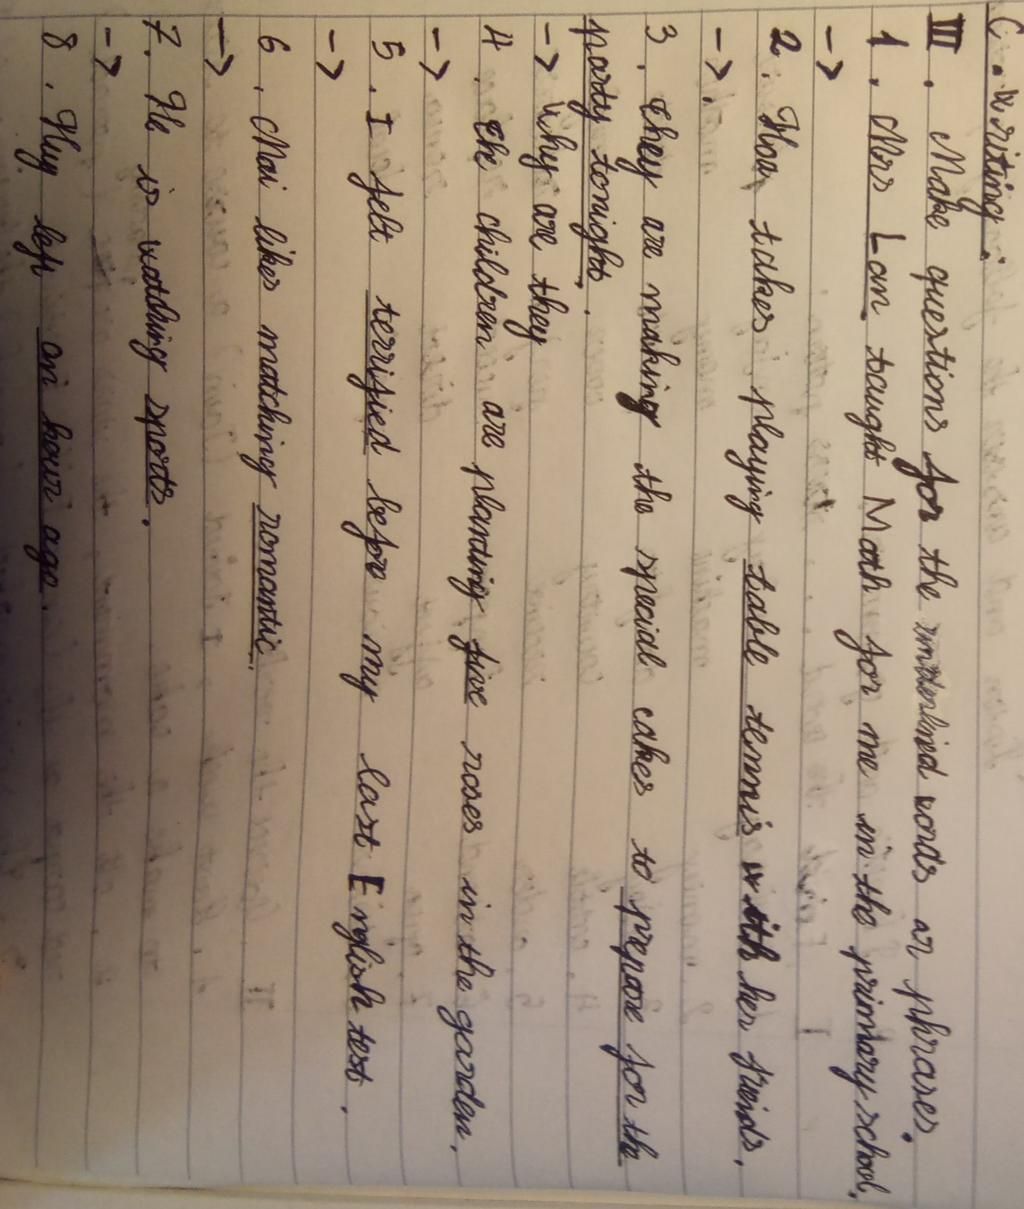 C. Writing.
III. Make questions for the underlined words or phrases.
1. Mrs Lan taught Math for me in the primary school.
->
2. Hoa takes playing table tennis with her friends.
->.
3. They are making the special cakes to prepare for the
party tonight.
-> Why are they
4. The children are planting five roses in the garden.
->
5. I felt terrified before my last English test.
->
6. Mai likes matching romantic.
->
7. He is watching sports.
->
8. Huy left an hour ago.